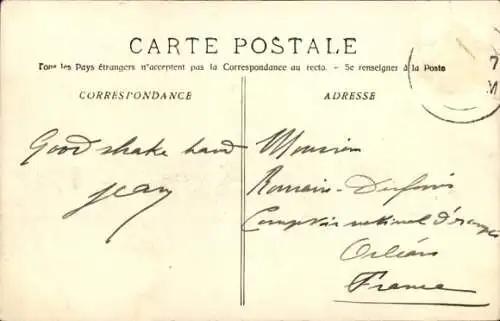 CARTE POSTALE
Tous les Pays étrangers n'acceptent pas la Correspondance au recto. - Se renseigner à la Poste
7
M
CORRESPONDANCE
ADRESSE
Good shake hand
Jean
Monsieur
Romain-
Comptoir national d'
Orléans
France